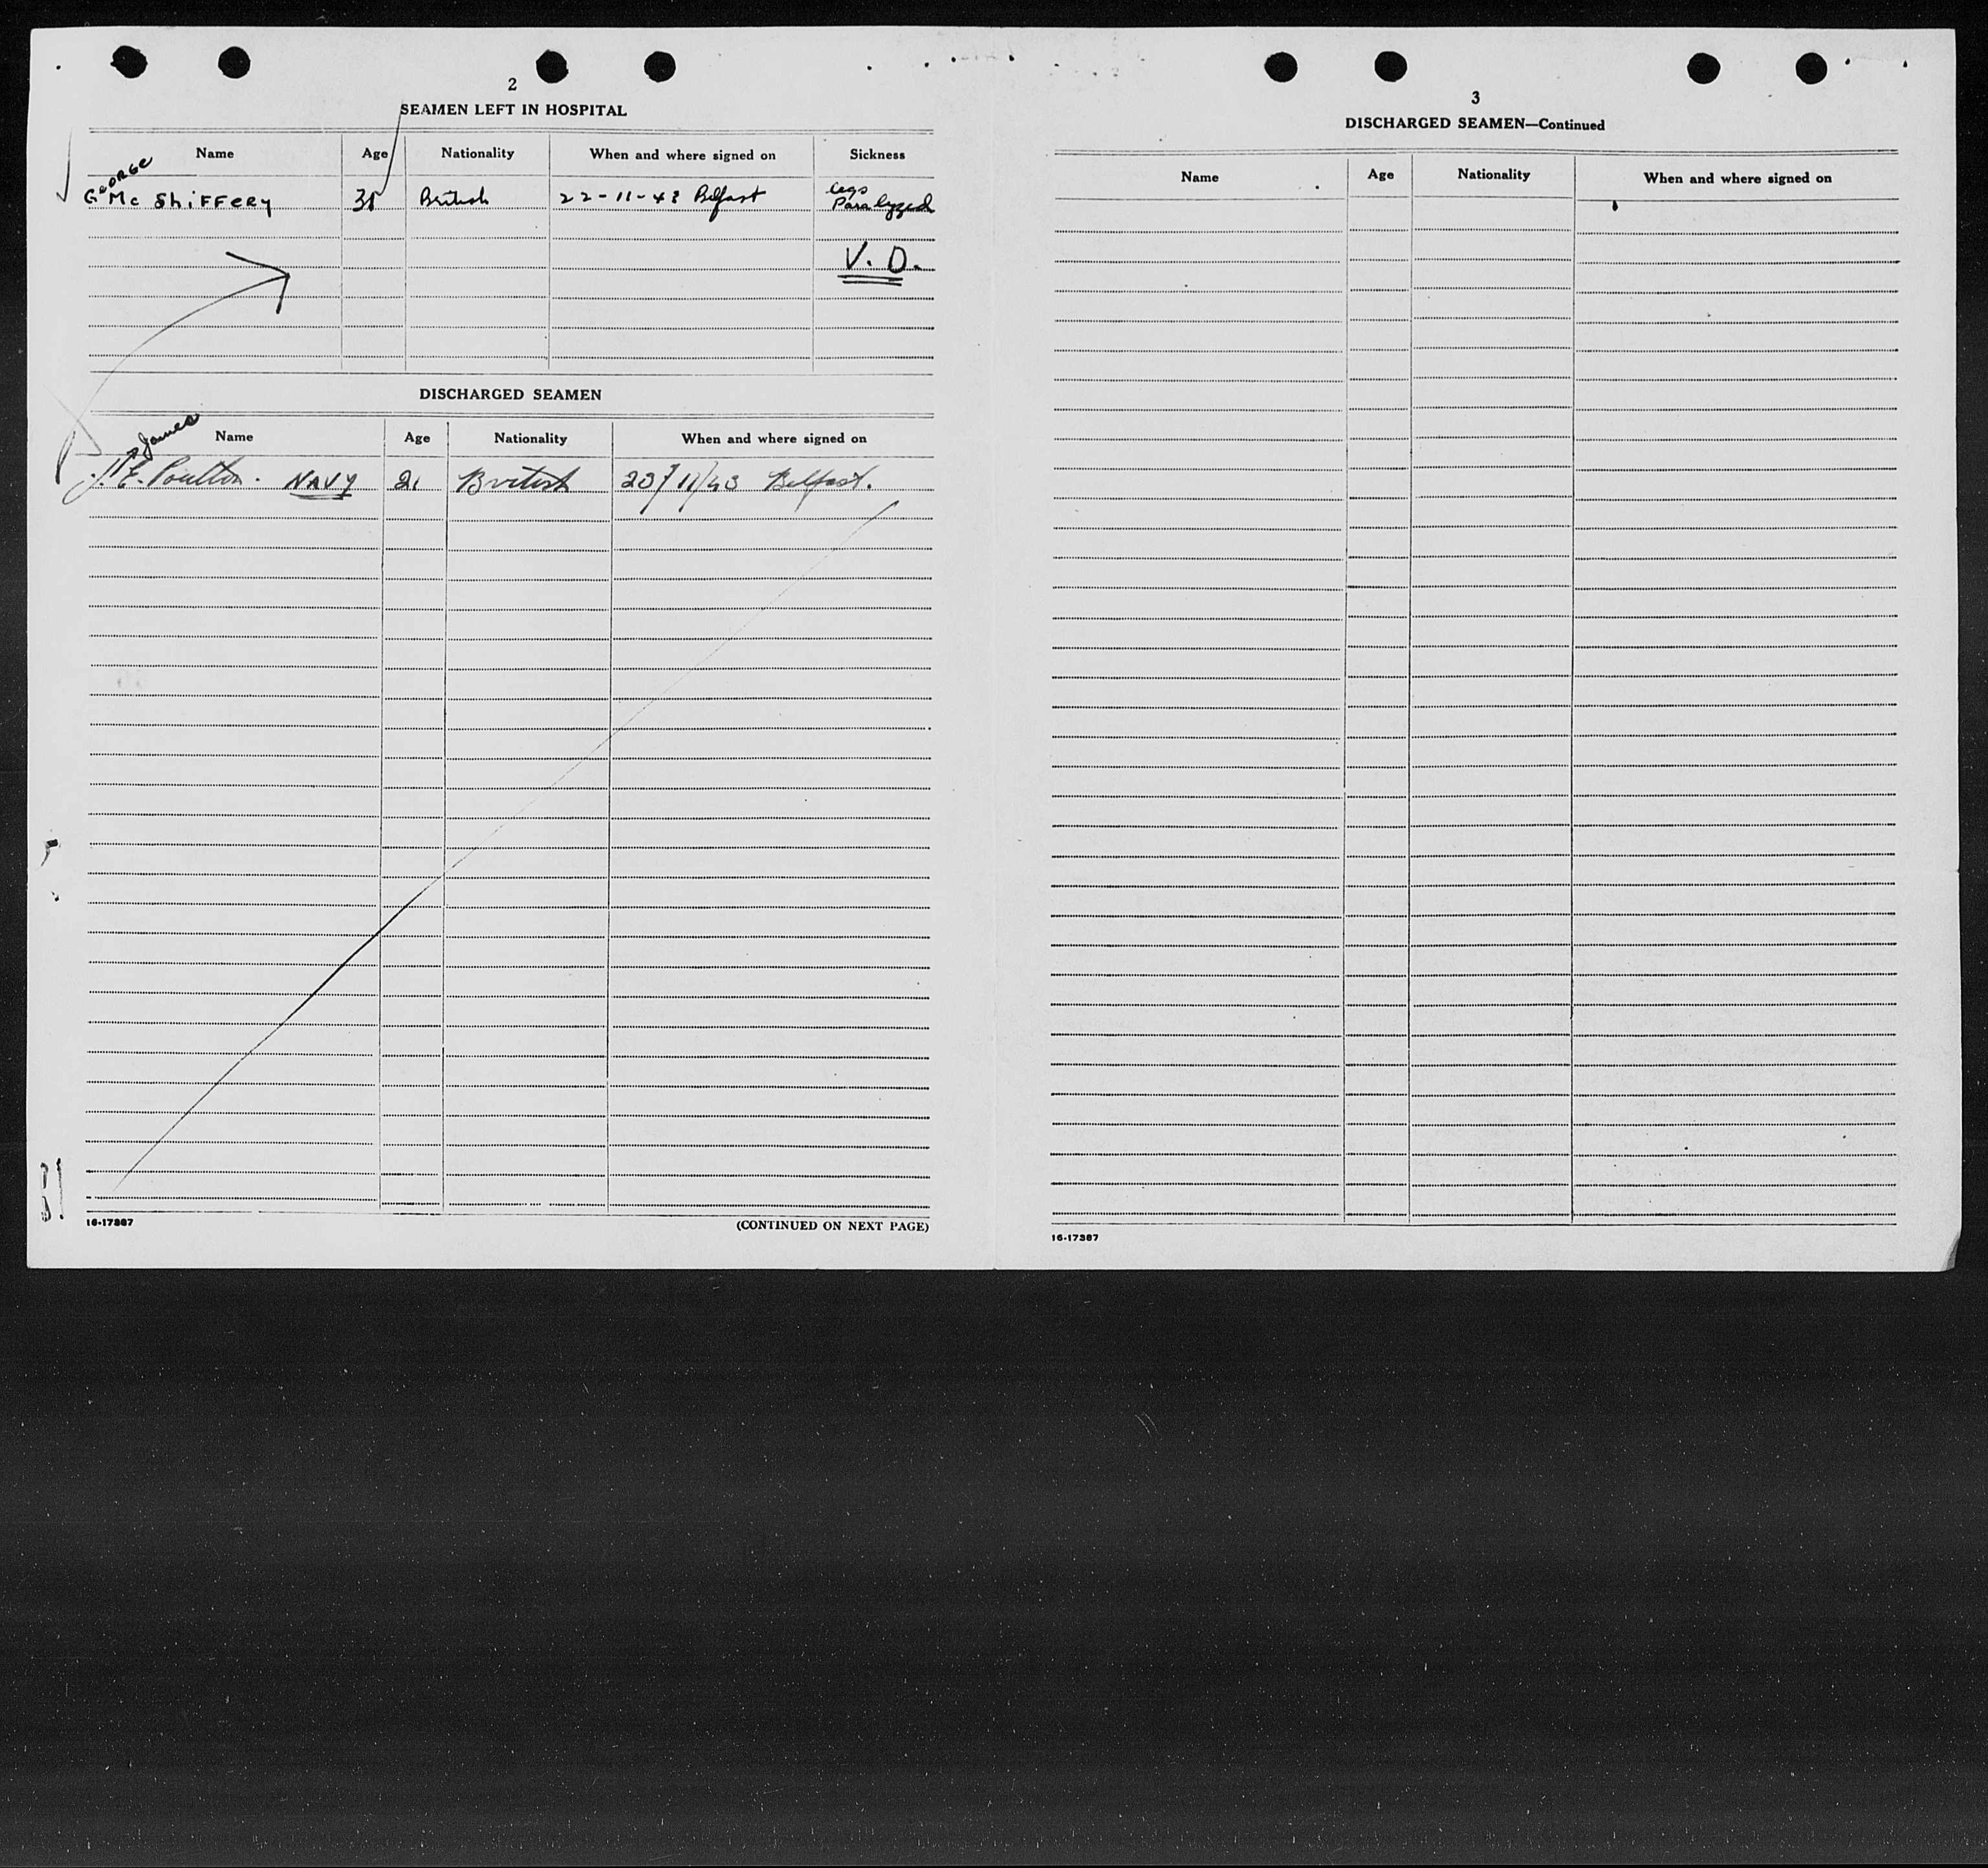 2
SEAMEN LEFT IN HOSPITAL
Name Age Nationality When and where signed on Sickness
GEORGE
G Mc Shiffery British 22-11-43 Belfast Legs Paralyzed
V. D.
DISCHARGED SEAMEN
Name Age Nationality When and where signed on
James
J. E. Poulton. NAVY 21 British 23/11/43 Belfast.
16-17387
(CONTINUED ON NEXT PAGE)
3
DISCHARGED SEAMEN—Continued
Name Age Nationality When and where signed on
16-17387